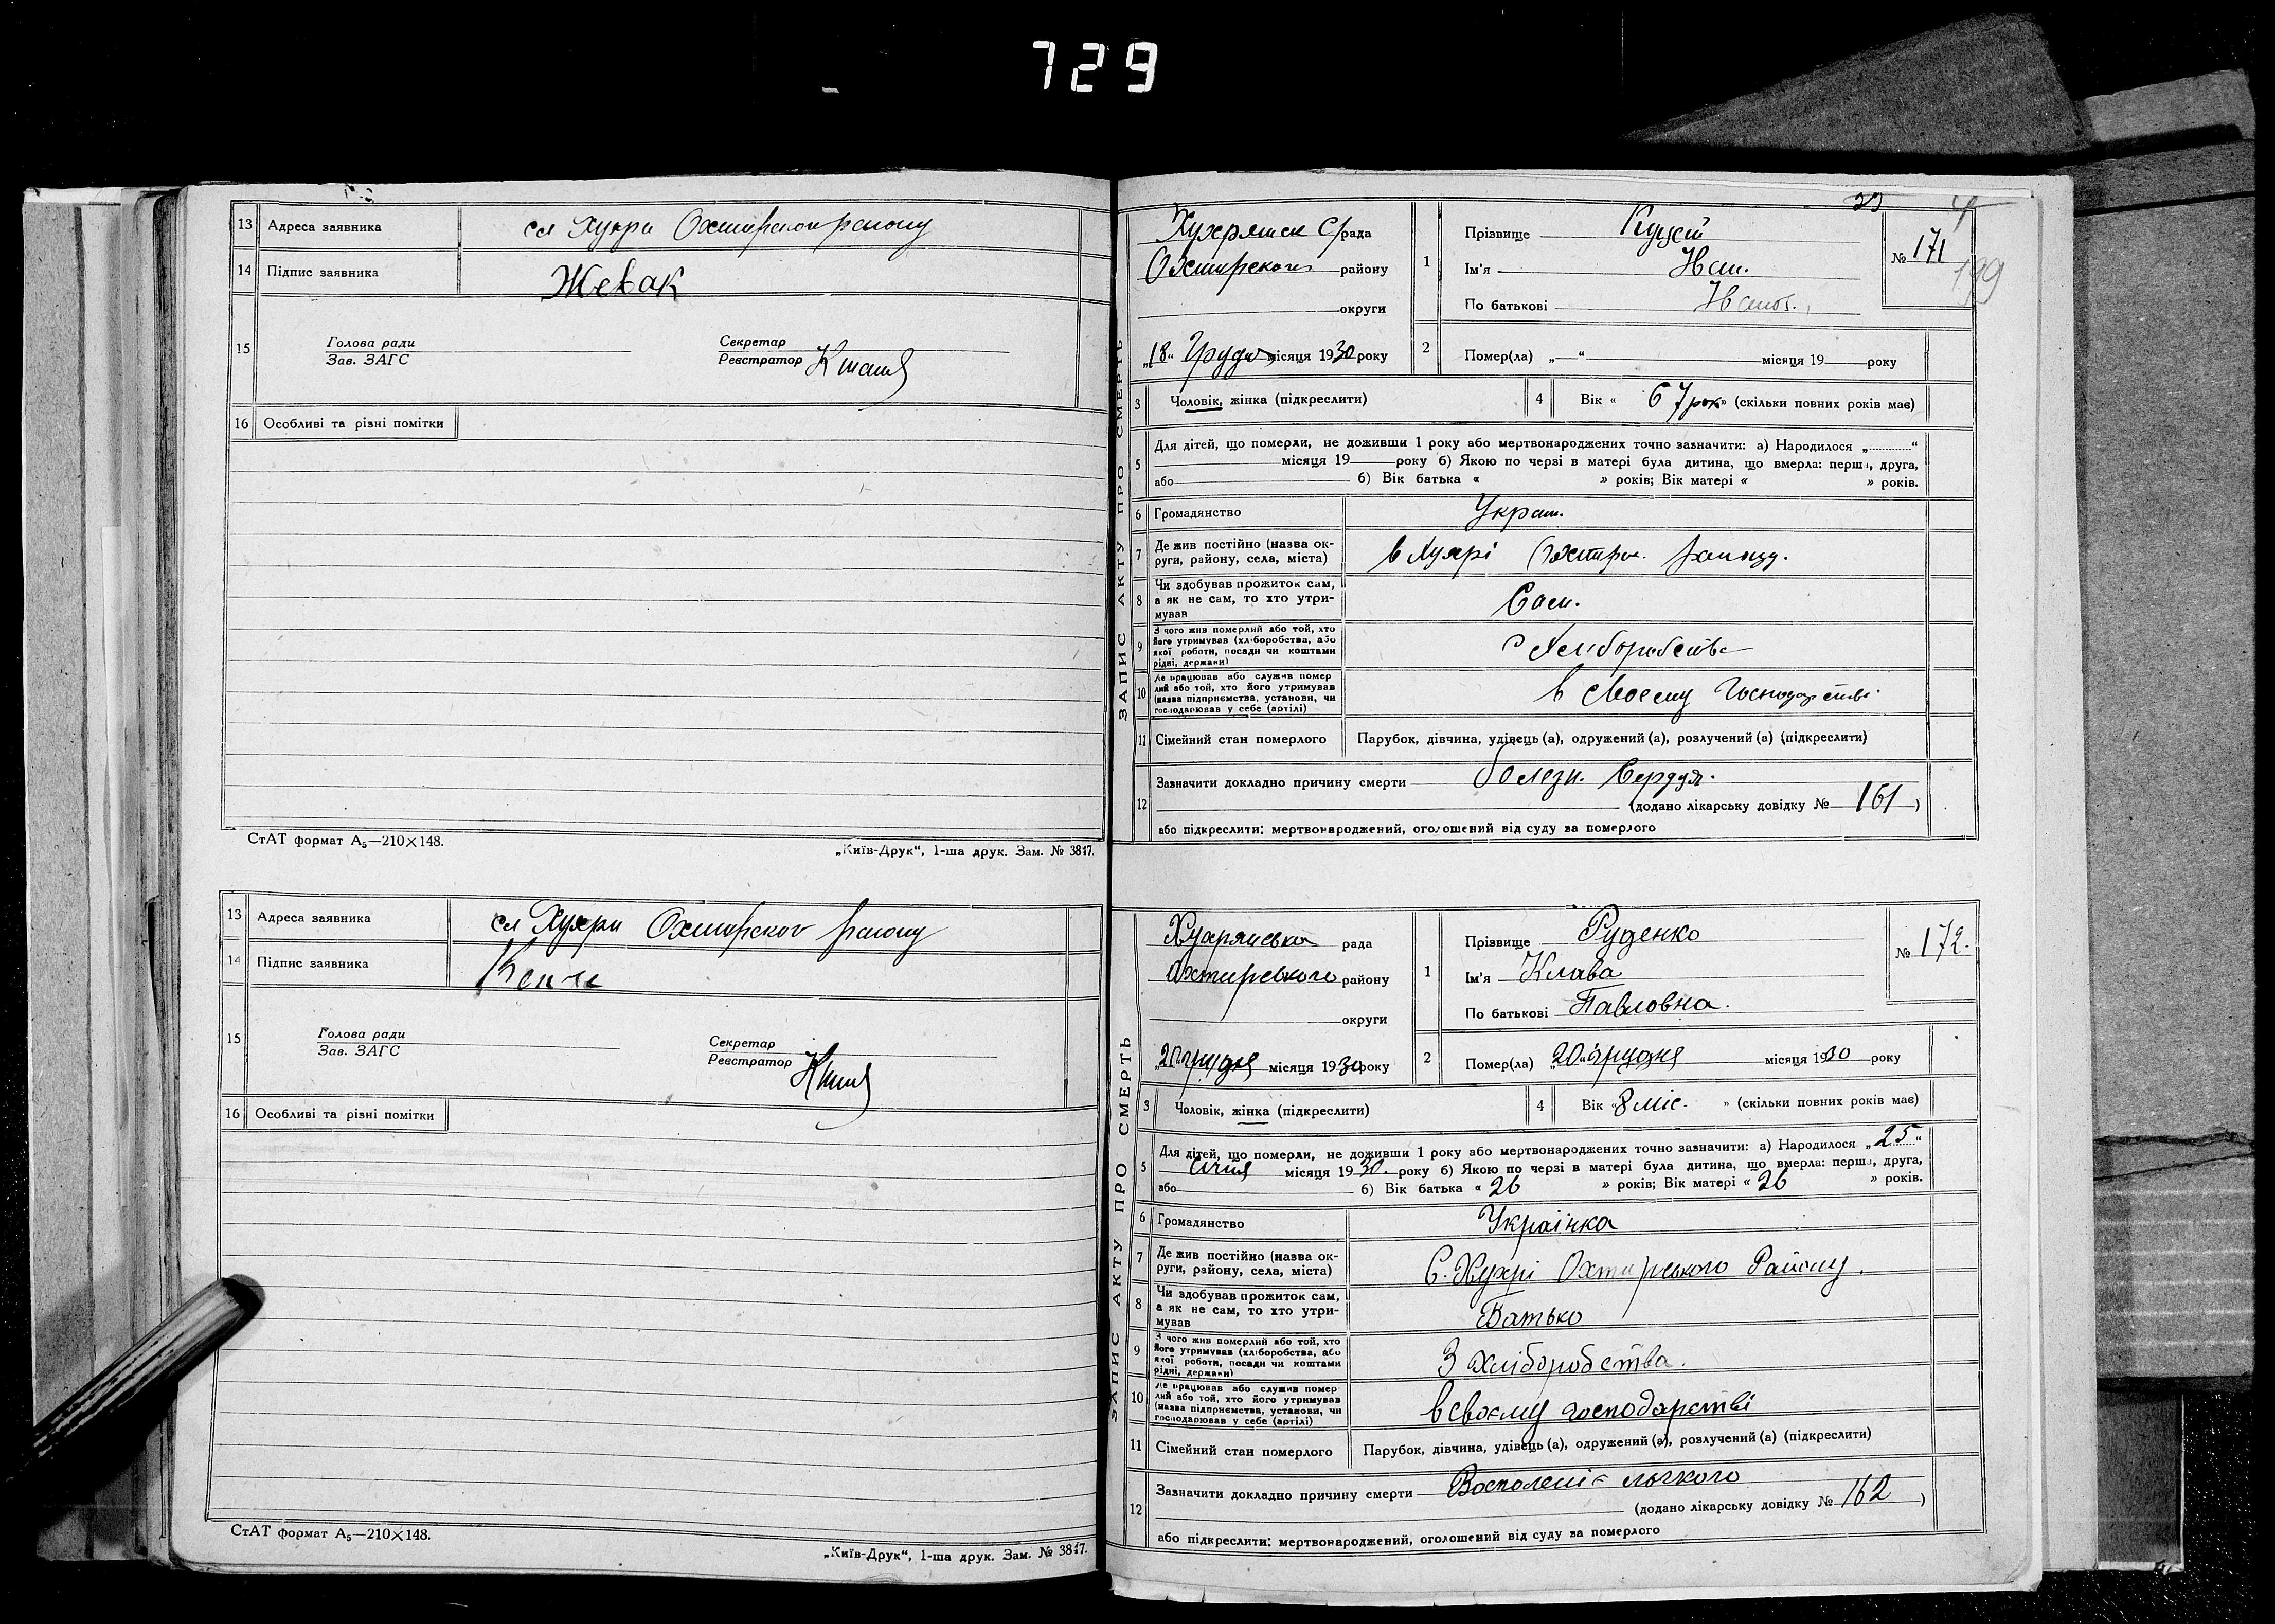 729
13 Адреса заявника сл Хухри Охтирского району
14 Підпис заявника Жевак
15 Голова ради
Зав. ЗАГС
Секретар
Реєстратор
16 Особливі та різні помітки
СтАТ формат А₅—210×148.
„Київ-Друк“, 1-ша друк. Зам. № 3847.
13 Адреса заявника сл Хухри Охтирског району
14 Підпис заявника
15 Голова ради
Зав. ЗАГС
Секретар
Реєстратор
16 Особливі та різні помітки
СтАТ формат А₅—210×148.
„Київ-Друк“, 1-ша друк. Зам. № 3847.
ЗАПИС АКТУ ПРО СМЕРТЬ
рада
Охтирского району
округи
„18“ Грудн місяця 1930 року
1 Прізвище
Ім'я Иван.
По батькові Иванов.
№ 171
199
2 Помер(ла) „ “ місяця 19 року
3 Чоловік, жінка (підкреслити)
4 Вік « 67 рок » (скільки повних років має)
5 Для дітей, що померли, не доживши 1 року або мертвонароджених точно зазначити: а) Народилося „..........“
місяця 19 року б) Якою по черзі в матері була дитина, що вмерла: перша, друга,
або б) Вік батька « » років; Вік матері « » років.
6 Громадянство Украин.
7 Де жив постійно (назва ок-
руги, району, села, міста) в Хухрі Охтирск. району.
8 Чи здобував прожиток сам,
а як не сам, то хто утри-
мував Сам.
9 З чого жив померлий або той, хто
його утримував (хліборобства, або
якої роботи, посади чи коштами
рідні, держави) з Хліборобства
10 Де працював або служив помер
лий або той, хто його утримував
(назва підприємства, установи, чи
господарював у себе (артілі) в своему господарстві
11 Сімейний стан померлого Парубок, дівчина, удівець (а), одружений (а), розлучений (а) (підкреслити)
12 Зазначити докладно причину смерти болезн. Сердця.
(додано лікарську довідку № 161)
або підкреслити: мертвонароджений, оголошений від суду за померлого
ЗАПИС АКТУ ПРО СМЕРТЬ
Хухрянська рада
Охтирського району
округи
грудня місяця 1930 року
1 Прізвище Руденко
Ім'я Клава
По батькові Павловна.
№ 172.
2 Помер(ла) „20“ грудня місяця 1930 року
3 Чоловік, жінка (підкреслити)
4 Вік « 8 міс. » (скільки повних років має)
5 Для дітей, що померли, не доживши 1 року або мертвонароджених точно зазначити: а) Народилося „25“
місяця 1930. року б) Якою по черзі в матері була дитина, що вмерла: перша, друга,
або б) Вік батька « 26 » років; Вік матері « 26 » років.
6 Громадянство Українка
7 Де жив постійно (назва ок-
руги, району, села, міста) С. Хухрі Охтирського Району.
8 Чи здобував прожиток сам,
а як не сам, то хто утри-
мував Батько
9 З чого жив померлий або той, хто
його утримував (хліборобства, або
якої роботи, посади чи коштами
рідні, держави) З хліборобства.
10 Де працював або служив помер
лий або той, хто його утримував
(назва підприємства, установи, чи
господарював у себе (артілі) в своєму господарстві
11 Сімейний стан померлого Парубок, дівчина, удівець (а), одружений (а), розлучений (а) (підкреслити)
12 Зазначити докладно причину смерти Воспаленіє льогкого
(додано лікарську довідку № 162)
або підкреслити: мертвонароджений, оголошений від суду за померлого